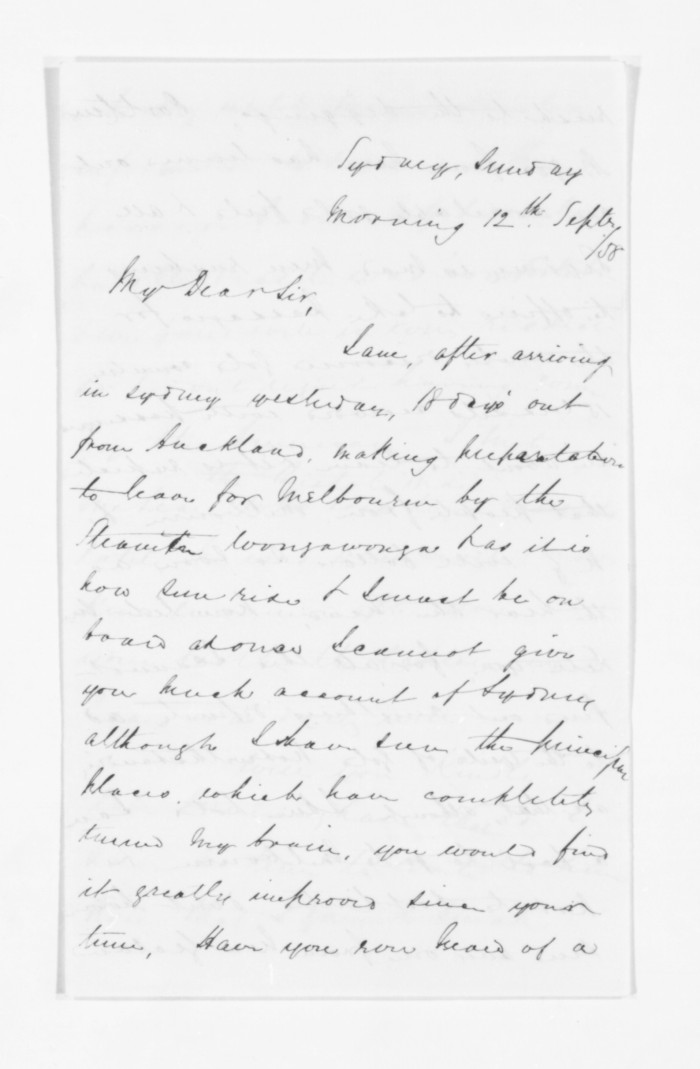 Sydney, Sunday
Morning 12th. Septr
/58
My Dear Sir,
I am, after arriving
in Sydney yesterday, 18 days out
from Auckland, making preparation
to leave for Melbourne by the
Steamer Wongawonga has it is
now sun rise & I must be on
board at once I cannot give
you much account of Sydney
although I have seen the principal
places, which have completely
turned my brain, you would find
it greatly improved since your
time, Have you ever heard of a